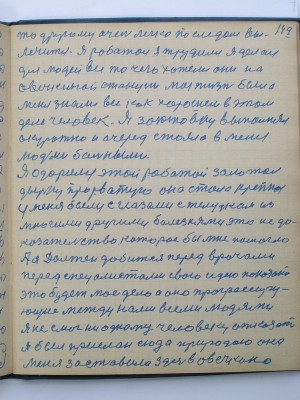 то другому очен легко последам вы-
лечитя. Я работая я трудился я делал
для людей все то чего хотели они на
станции моя была
меня знали все как хорошем в этом
деле человек. Я заготовку выполнял
окуратно и очеред стояла в меня
людми болными.
Я одарился этой работай
дырку она стала крепкая
у меня всеми с глазами с желудком из
многими другими болезнями это не до-
козателство которое бы мне помогло
А я должен добится перед врачами
перед специалистами свою идею показат
это будет мое дело а оно прогрессиру-
ющие между нами всеми людями
я не смог ни одному человеку отказат
я был прислан сюда природаю она
меня заставила здес в овечкино